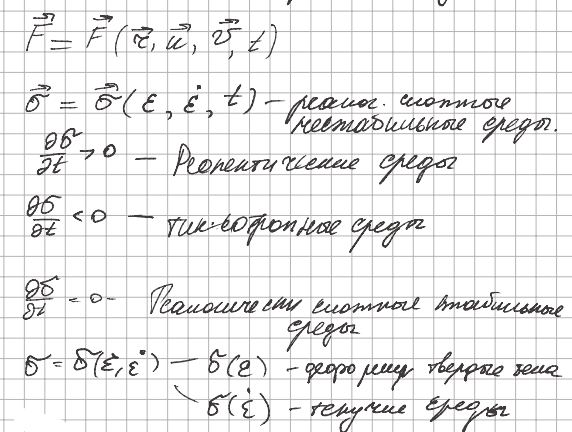 F⃗ = F⃗ (r⃗, u⃗, v⃗, t)
σ⃗ = σ⃗ (ε, ε̇, t) – реолог. сложные
нестабильные среды.
∂σ/∂t > 0 — Реопектические среды
∂σ/∂t < 0 — тиксотропные среды
∂σ/∂t = 0 - Реологически сложные стабильные
среды
σ = σ(ε, ε̇) — σ(ε) - деформир твердые тела
σ(ε̇) - текучие среды